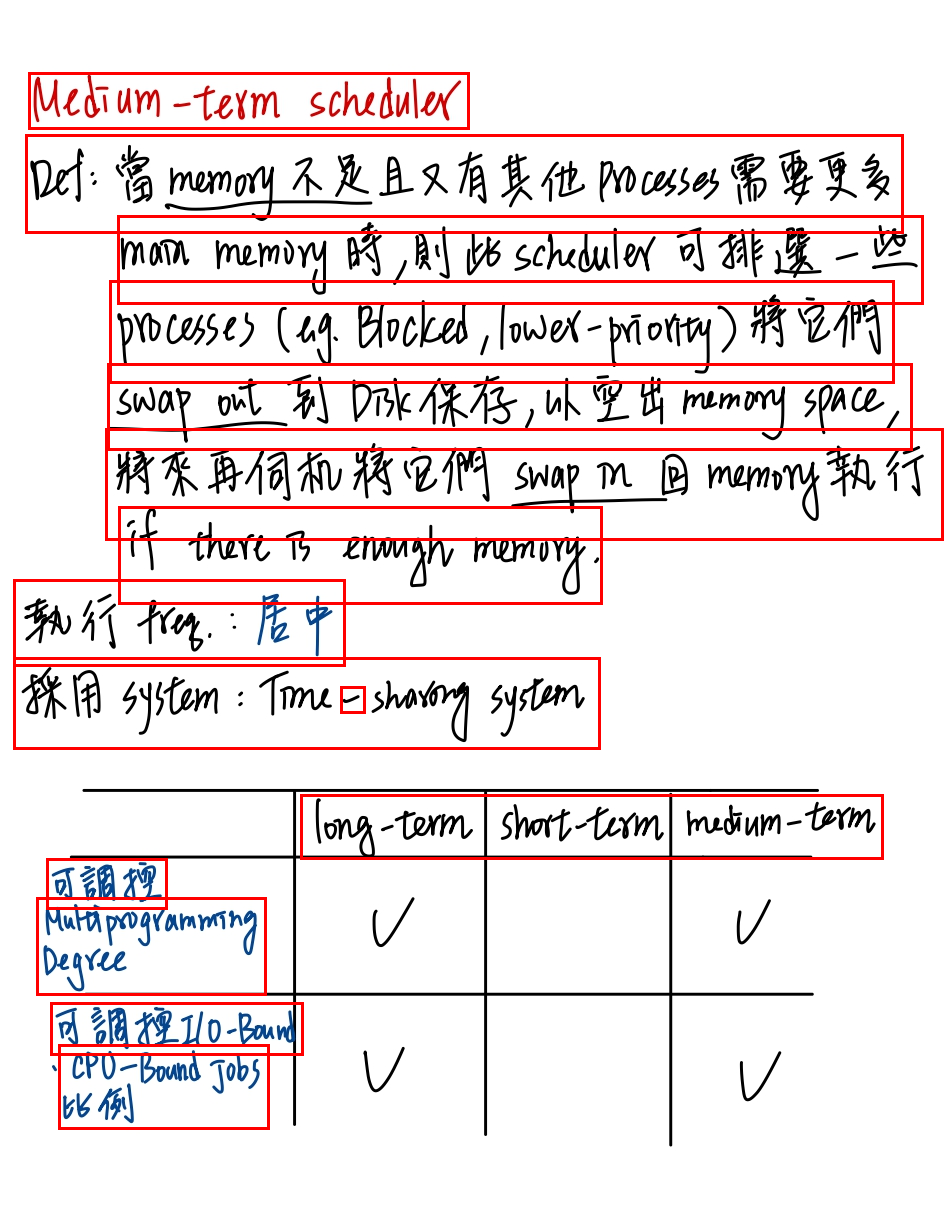 Medium-term scheduler
Def: 當 memory 不足且又有其他 processes 需要更多
main memory 時,則此 scheduler 可排選一些
processes (e.g. Blocked, lower-priority) 將它們
swap out 到 Disk 保存, 以空出 memory space,
將來再伺机將它們 swap in 回 memory 執行
if there is enough memory.
執行 freq. : 居中
採用 system : Time-sharing system
long-term short-term medium-term
可調控
Multiprogramming
Degree
可調控 I/O-Bound
CPU-Bound Jobs
比例